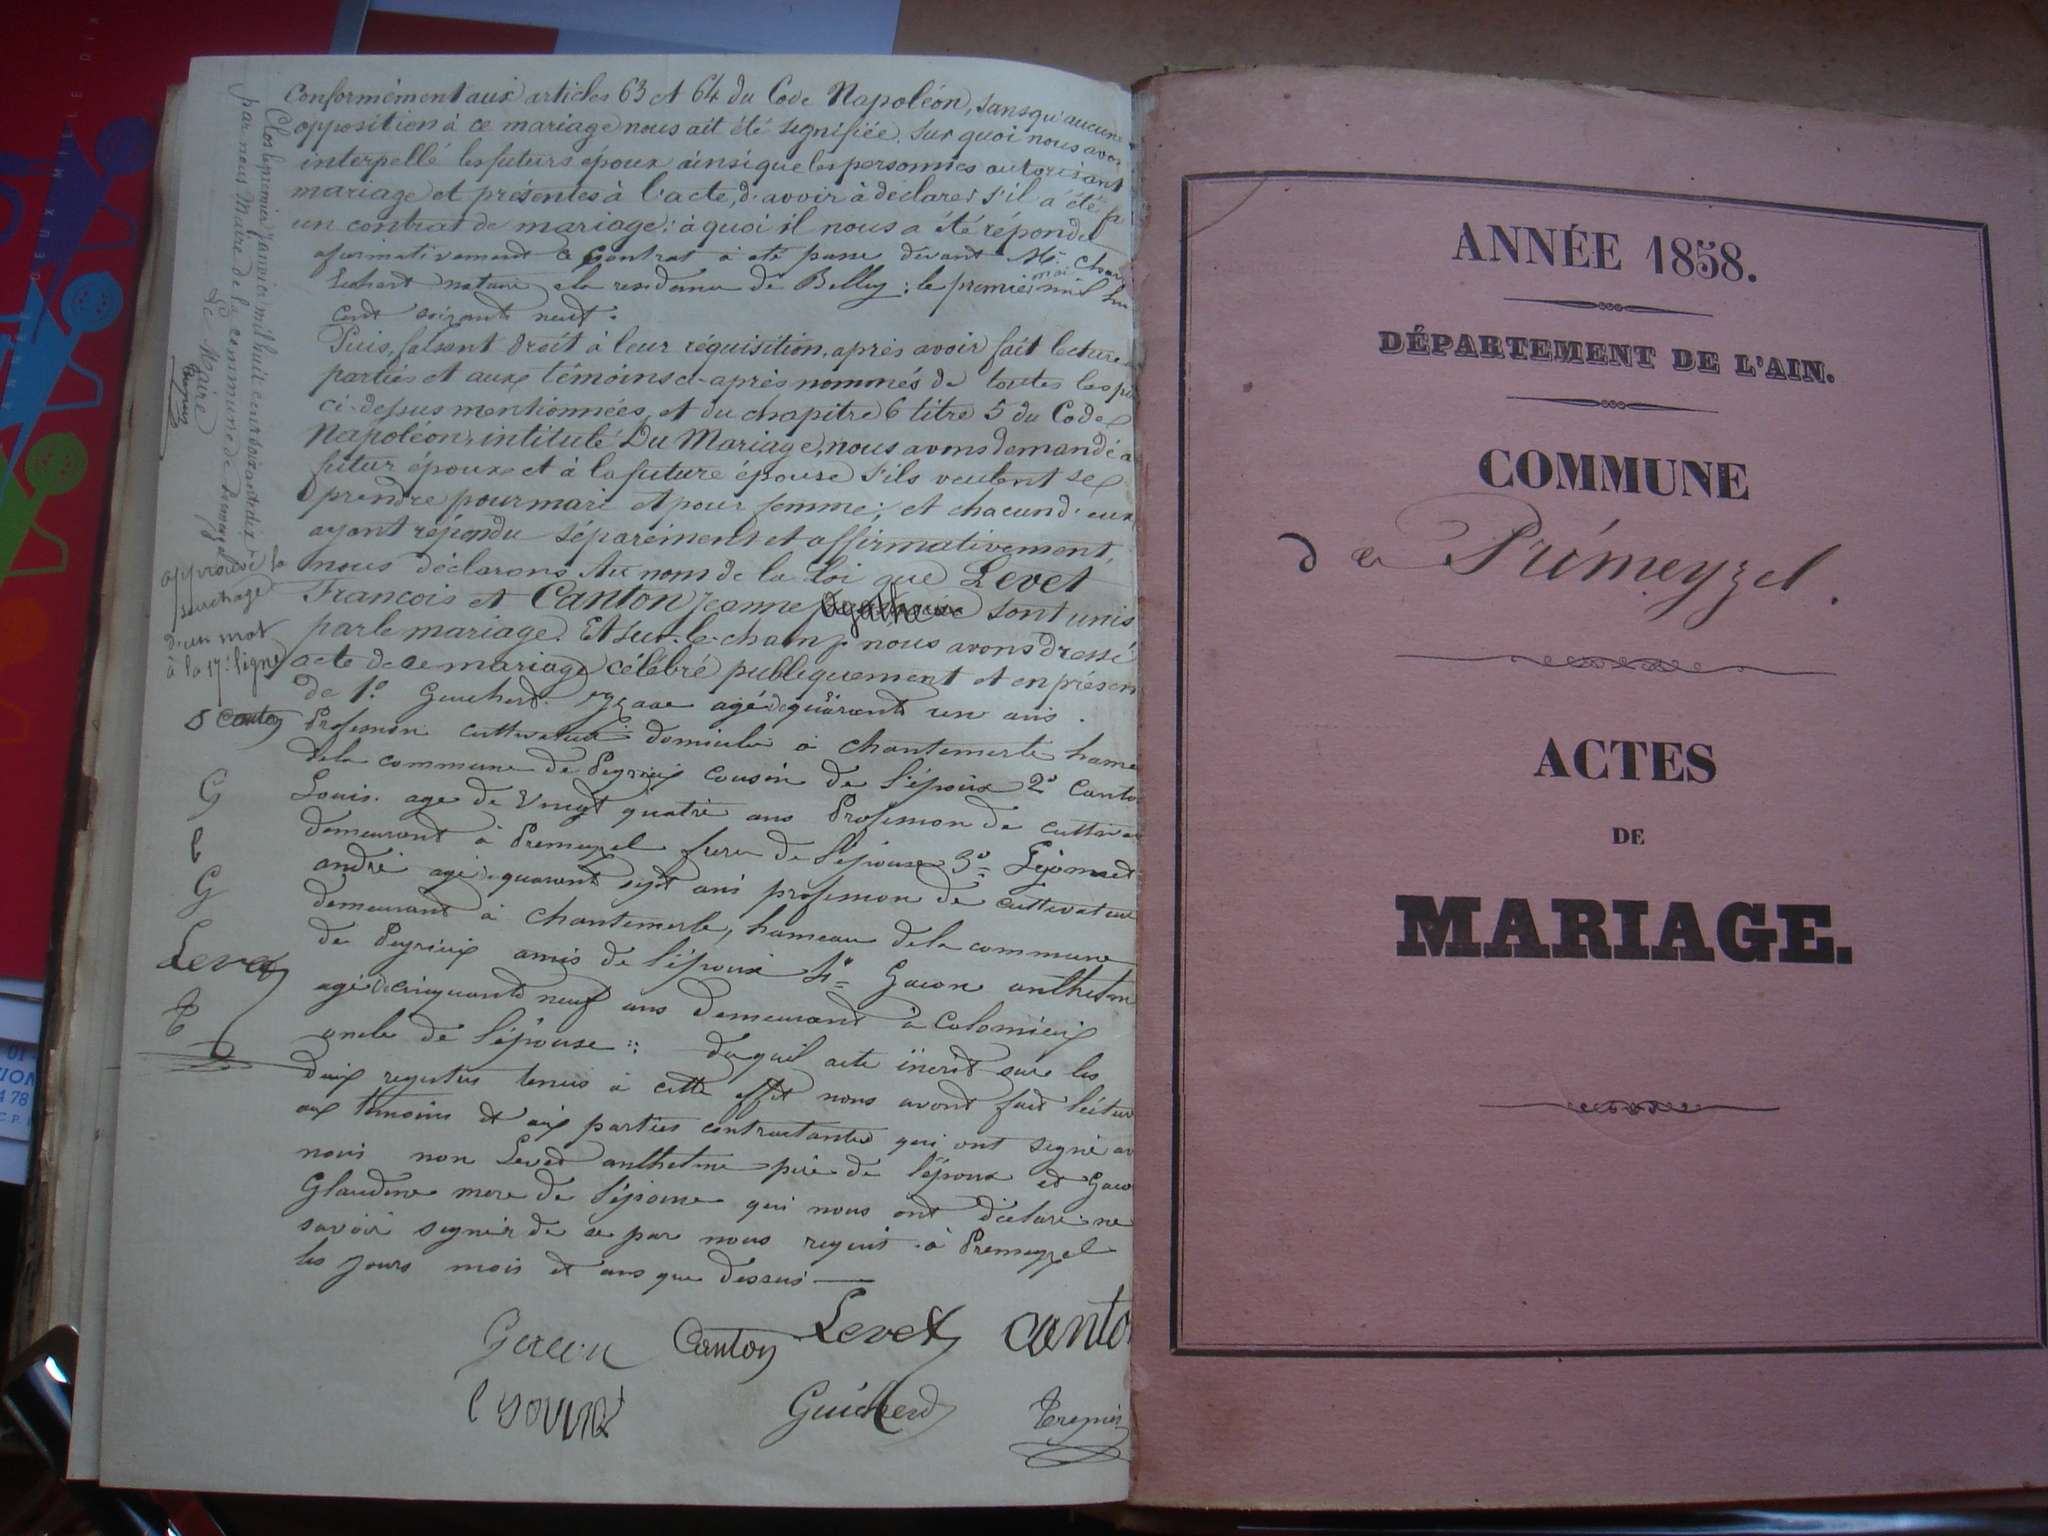 Conformément aux articles 63 et 64 du Code Napoléon, sans qu'aucune
opposition à ce mariage nous ait été signifiée. Sur quoi nous avons
interpellé les futurs époux ainsi que les personnes autorisant
mariage et présentes à l'acte, d'avoir à déclarer s'il a été
un contrat de mariage: à quoi il nous a été répondu
afirmativement Ce Contrat a été passe devant Me
notaire a la residence de Belley: le premier mai mil
cent soixante neuf.
Puis, faisant droit à leur réquisition, après avoir fait lecture
parties et aux témoins ci-après nommés de toutes les
ci-dessus mentionnées, et du chapitre 6 titre 5 du Code
Napoléon, intitulé Du Mariage, nous avons demandé
futur époux et à la future épouse s'ils veulent se
prendre pour mari et pour femme; et chacun d'eux
ayant répondu séparément et affirmativement,
nous déclarons Au nom de la Loi que Levet
François et Canton Jeanne agathe sont unis
par le mariage. Et sur-le-champ nous avons dressé
acte de ce mariage célébré publiquement et en
de 1° Guicherd agé de quarante un ans.
Profession cultivateur domicilié à Chantemerle
de la commune de Peyrieux cousin de l'époux 2°
Louis. age de Vingt quatre ans Profession de
demeurant à Premeyzel frere de l'épouse 3°
andré agé de quarante sept ans profession de cultivateur
demeurant à Chantemerle, hameau de la commune
de Peyrieux amis de l'époux 4° Gacon anthelme
agé de cinquante neuf ans demeurant à Colomieux
oncle de l'épouse: duquel acte inscrit sur les
deux registres tenus à cette effet nous avont fait
aux témoins et aux parties contractantes qui ont signé
nous non Levet anthelme père de l'époux et
Glaudine mere de l'épouse qui nous ont déclaré ne
savoir signer de ce par nous requis. à Premeyzel
les jours mois et ans que dessus
Gacon Canton Levet
Guicherd Trepier
Clos le premier janvier mil huit cent soixante dix
par nous Maire de la commune de Premeyzel
Le Maire
approuvé la
surchage
d'un mot
à la 17e ligne
Canton
G
G
Levet
T
ANNÉE 1858.
DÉPARTEMENT DE L'AIN.
COMMUNE
de Prémeyzel.
ACTES
DE
MARIAGE.